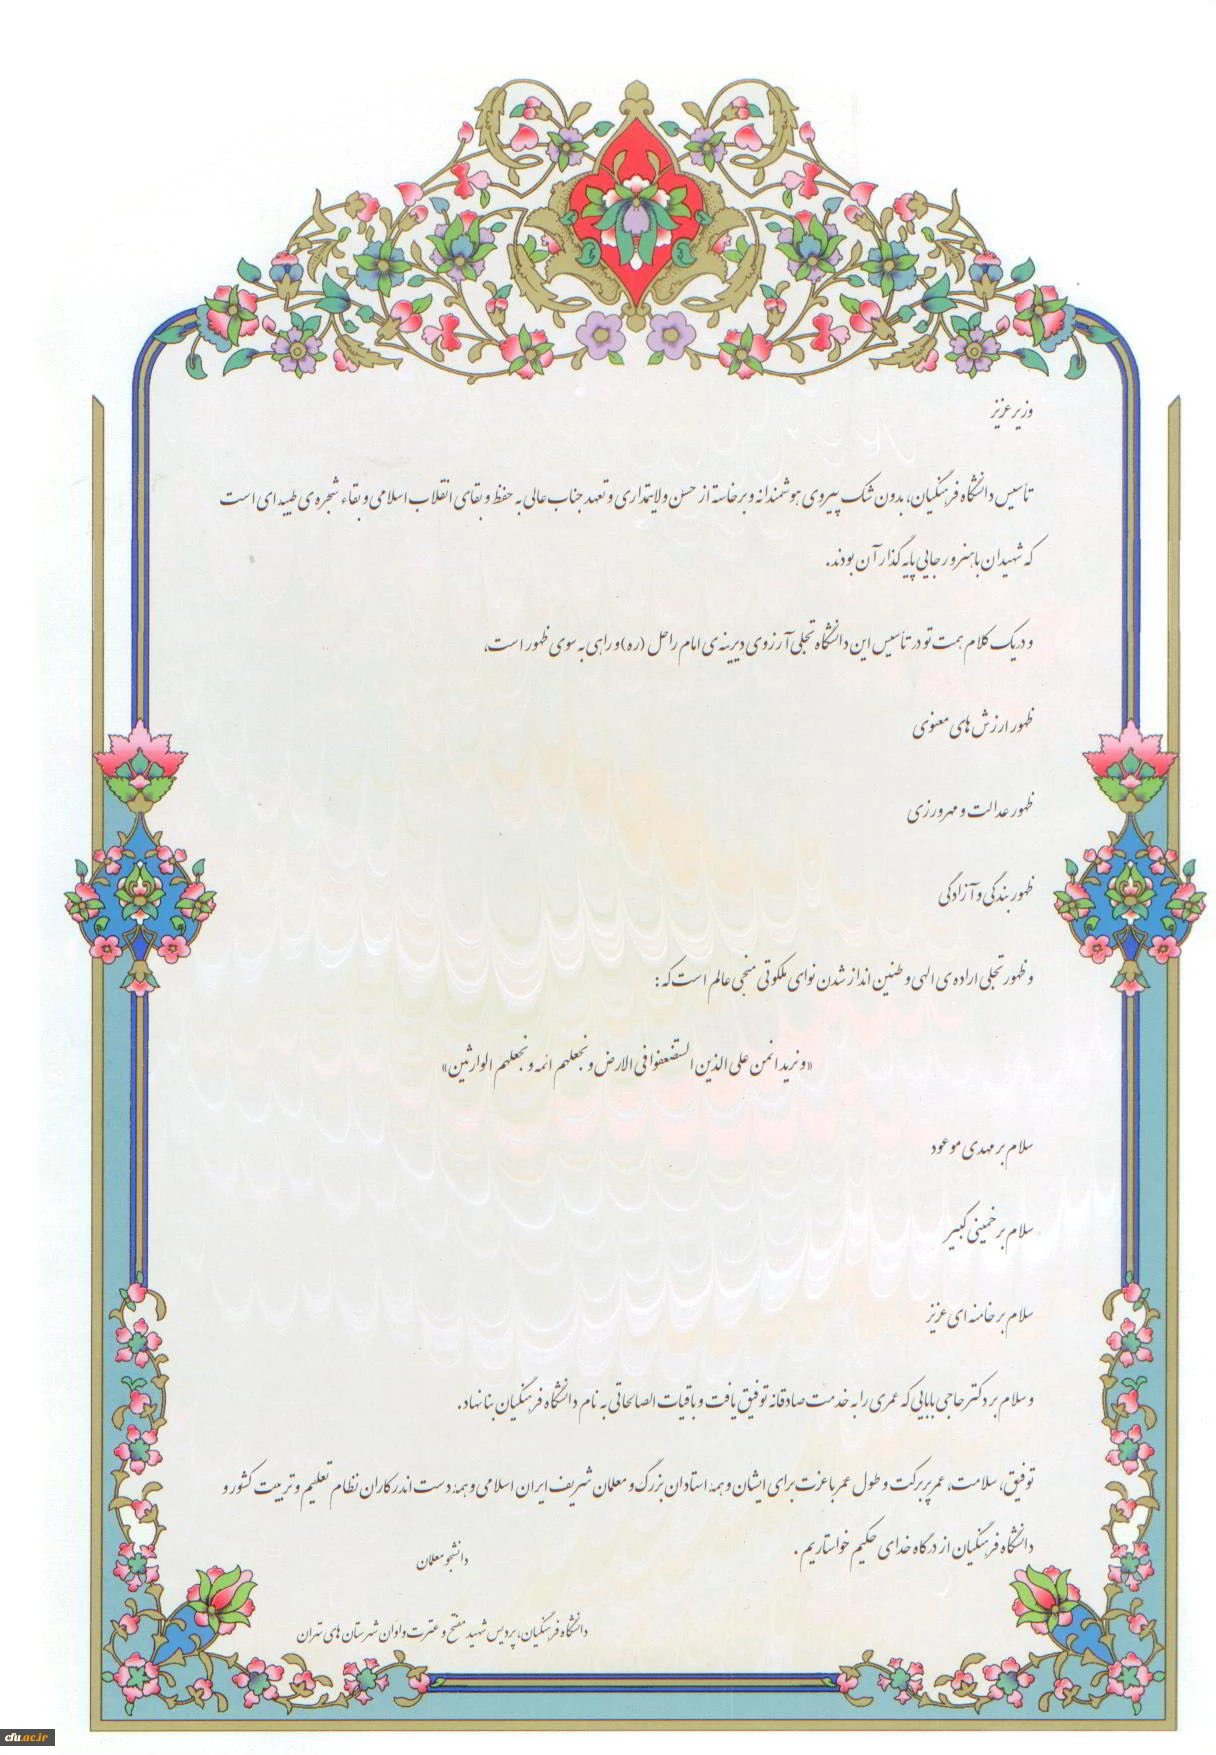 وزیر عزیز
تأسیس دانشگاه فرهنگیان، بدون شک پیروی هوشمندانه و برخاسته از حسن ولایتمداری و تعهد جناب عالی به حفظ و بقای انقلاب اسلامی و بقاء شجره‌ی طیبه‌ای است
که شهیدان باهنر و رجایی پایه گذار آن بودند.
و در یک کلام همت تو در تأسیس این دانشگاه تجلی آرزوی دیرینه‌ی امام راحل (ره) و راهی به سوی ظهور است،
ظهور ارزش های معنوی
ظهور عدالت و مهرورزی
ظهور بندگی و آزادگی
و ظهور تجلی اراده‌ی الهی و طنین انداز شدن نوای ملکوتی منجی عالم است که :
«و نرید انمن علی الذین الستضعفوا فی الارض و نجعلهم ائمه و نجعلهم الوارثین»
سلام بر مهدی موعود
سلام بر خمینی کبیر
سلام بر خامنه ای عزیز
و سلام بر دکتر حاجی بابایی که عمری را به خدمت صادقانه توفیق یافت و باقیات الصالحاتی به نام دانشگاه فرهنگیان بنا نهاد.
توفیق، سلامت، عمر پربرکت و طول عمر باعزت برای ایشان و همهٔ استادان بزرگ و معلمان شریف ایران اسلامی و همهٔ دست اندرکاران نظام تعلیم و تربیت کشور و
دانشگاه فرهنگیان از درگاه خدای حکیم خواستاریم .
دانشجو معلمان
دانشگاه فرهنگیان، پردیس شهید مفتح و عترت و اوان شهرستان های تهران
cfu.ac.ir